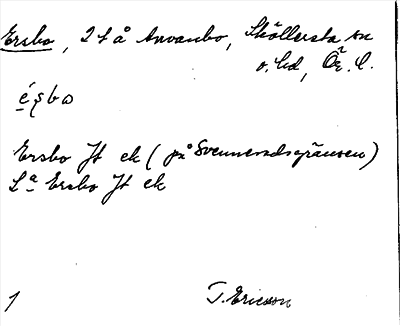 Ersbo, 2 t å Anvanbo, Sköllersta sn
o. hd, Ör. l.
é̱ṣbω
Ersbo Jt ek (på Svennevadsgränsen)
La Ersbo Jt ek
1 T. Ericsson